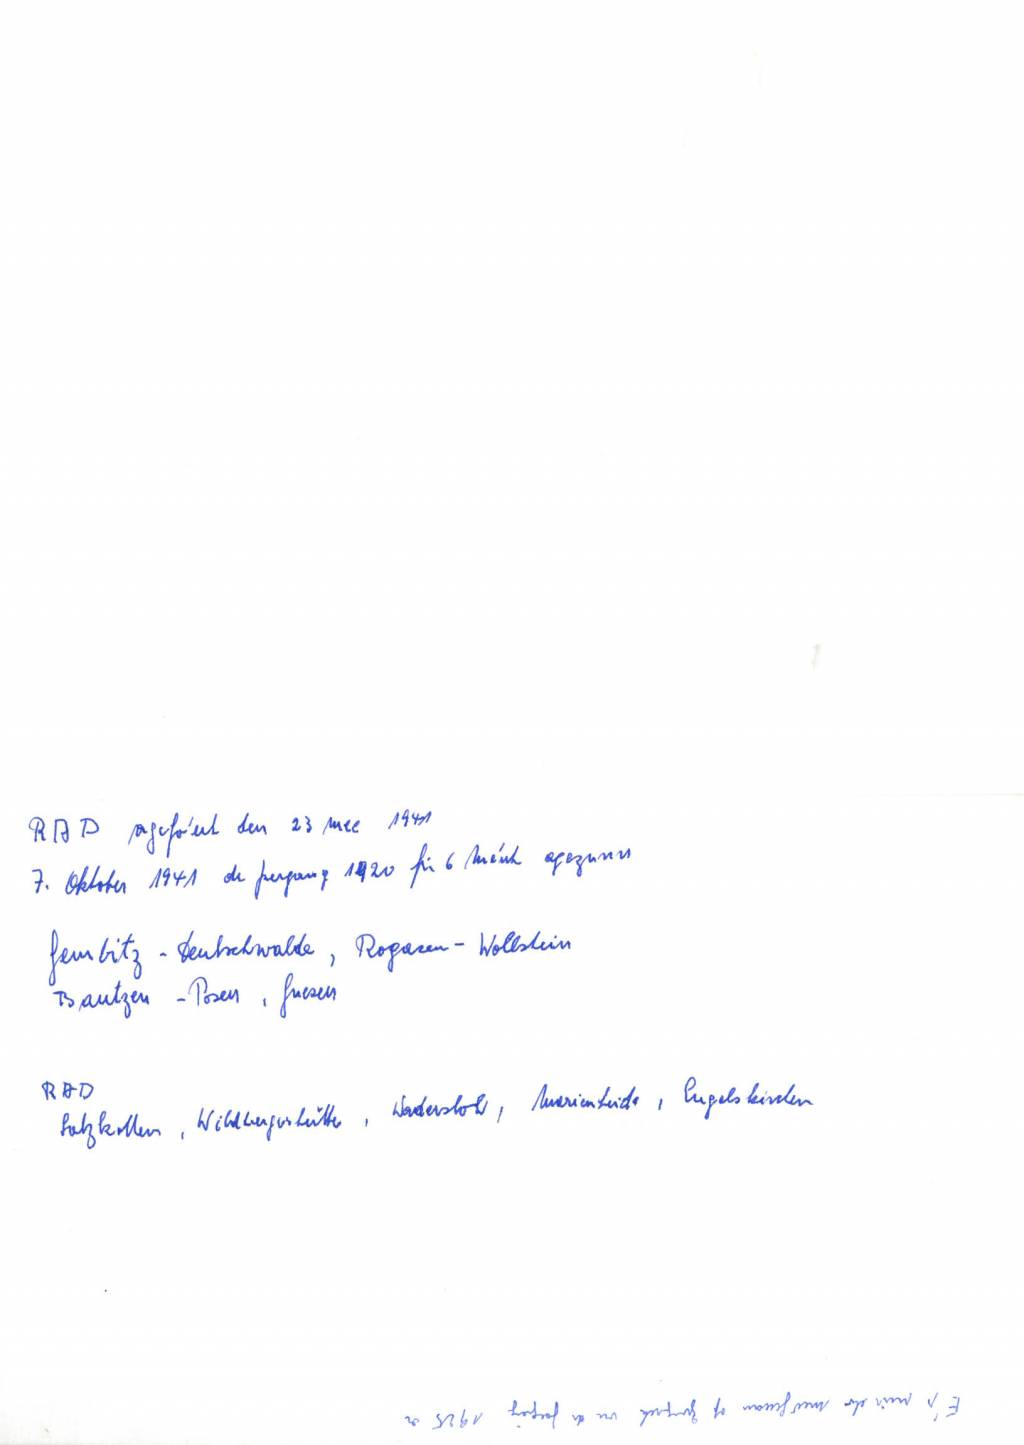 RAD agefouert den 23 mee 1941
7. Oktober 1941 de jergang 1920 fir 6 Méint agezunn
Gembitz - Deutschwalde, Rogasen - Wollstein
Bautzen - Posen, Gnesen
RAD
Salzkotten, Wildbergerhütte, Wadersloh, Marienheide, Engelskirchen
1925